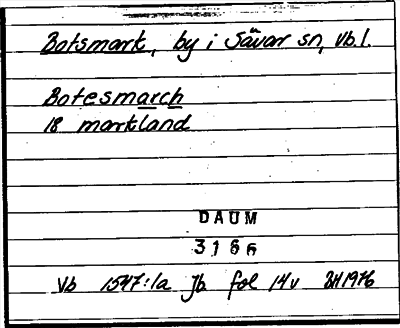 Botsmark, by i Sävar sn, Vb.l.
Botesmarch
18 markland
DAUM
3166
Vb 1547:1a Jb fol 14v BH 1976